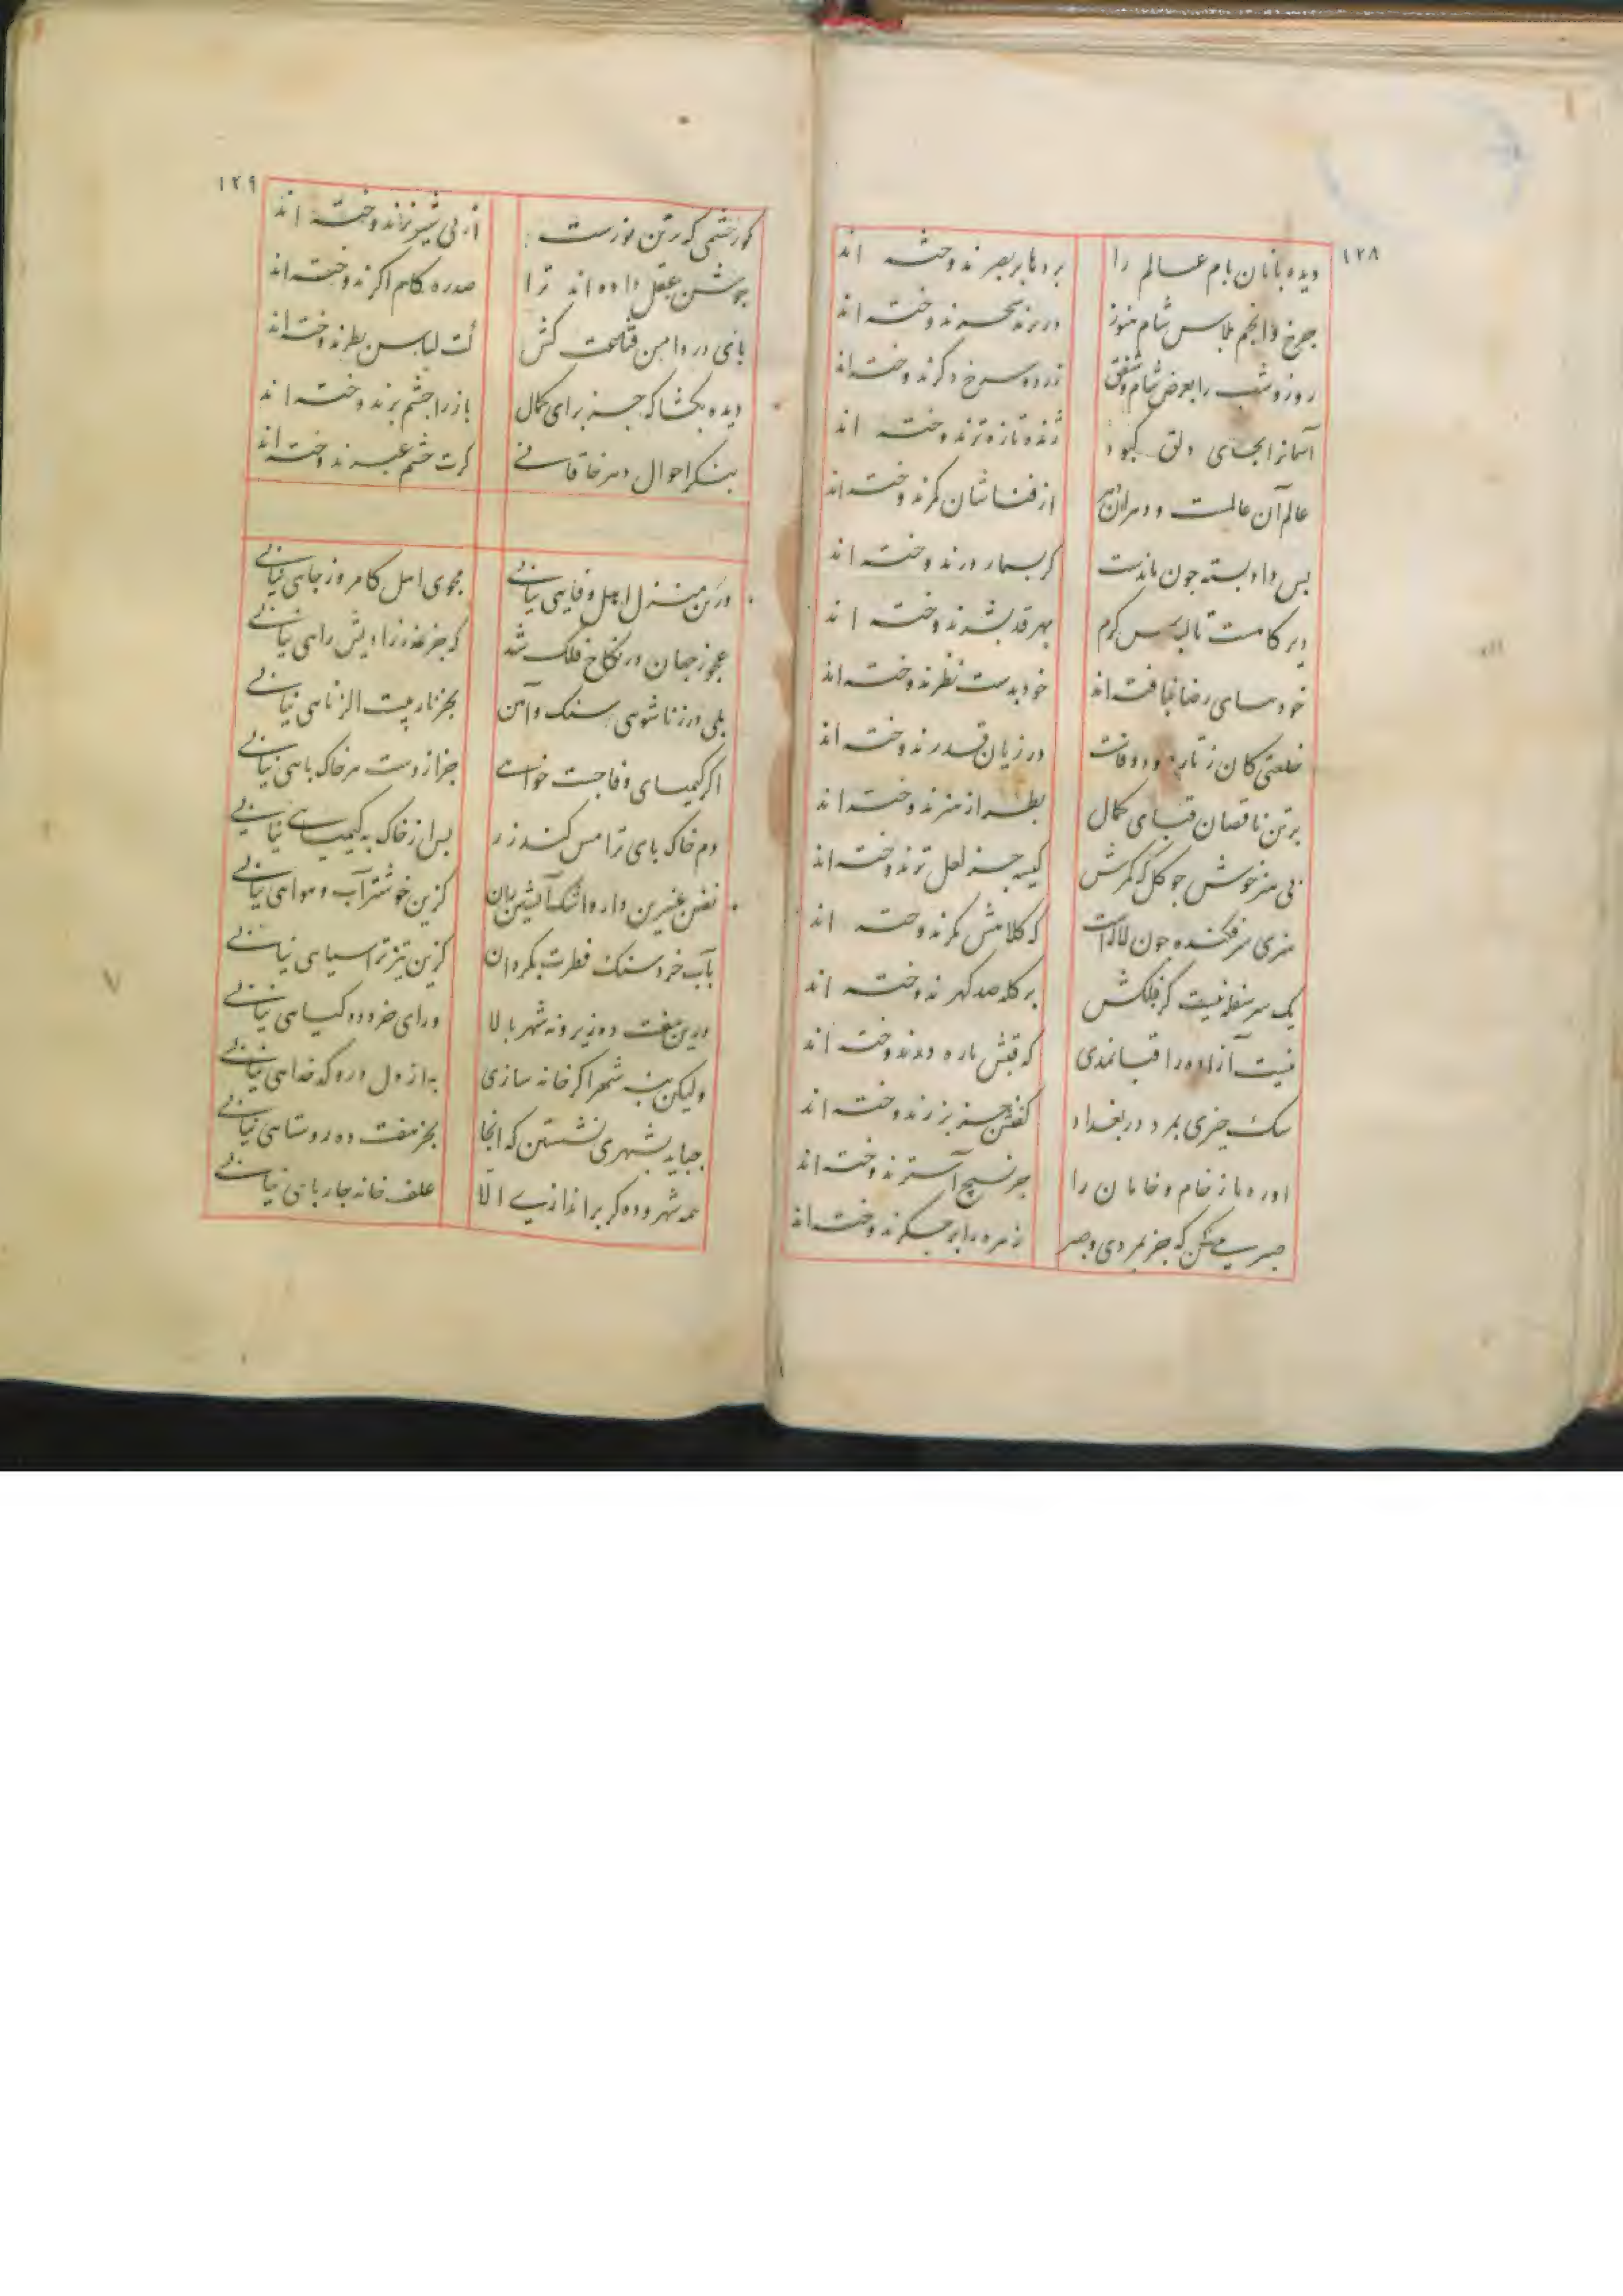 ١٢٨
دیده بانان بام عالم را
بردبا بر بصر ندوخته اند
چرخ و انجم پلاس شام هنوز
در بر سحر ندوخته اند
روز و شب را بعرض شام و شفق
زرده سرخ دگر ندوخته اند
آسمانرا بجای دلق کبود
ژنده تازه تر ندوخته اند
عالم آن عالمست و دهر آن دهر
از فنا شان کمر ندوخته اند
بس داد بسته چون ماندست
گر بسمار در ندوخته اند
دیر کامست تا لباس کرم
بهر قد بشر ندوخته اند
خود مسای رضا نیافته اند
خود بدست نظر ندوخته اند
خلعتی کان ز تار و بود وفاست
در زیان قدر ندوخته اند
بر تن ناقصان قبای کمال
بطراز هنر ندوخته اند
بی هنر خوش چو گل که کمرش
کیسه جز لعل تر ندوخته اند
هنری سرفکنده چون لاله است
که کلاهش مگر ندوخته اند
یک سر سفله نیست کز فلکش
بر کله صد گهر ندوخته اند
نیست آزاده را قبا نمدی
که قبش باره ندوخته اند
سک خیزی بمرد در بغداد
کفنش جز بزر ندوخته اند
اوره باز خام و خامان را
جز نسیج آستر ندوخته اند
صبر میکن که جز بمردی و صبر
زهره را بر جگر ندوخته اند
١٢٩
کور خشمی که بر تن موزست
از پی شیر نر ندوخته اند
جوشن عقل داده اند ترا
صدره کام اگر ندوخته اند
بای در دامن قناعت کش
کت لباس بطر ندوخته اند
دیده بگشا که جز برای کمال
باز را چشم بر ندوخته اند
بنگر احوال دهر خاقانی
کرت چشم عبر ندوخته اند
درین منزل اهل وفایی نیابی
مجوی اهل کامروز جایی نیابی
عجوز جهان در نکاح فلک شد
که جز عذر زادیش رایی نیابی
بلی در زناشوی سنگ و آهن
بجز نار بیت الزنایی نیابی
اگر کیمیای وفا جست خواهی
جز از دست هر خاک بایی نیابی
دم خاک بای ترا مس کند زر
بس از خاک به کیمیایی نیابی
نفس عنبرین دار و اشک آتشین زان
کزین خوشتر آب و هوایی نیابی
بآب خرد سنگ فطرت بگردان
کزین تیزتر آسیایی نیابی
درین هفت ده زیر و نه شهر بالا
ورای خرد ده کیایی نیابی
ولیکن بنه شهر اگر خانه سازی
به از دل درو کدخدایی نیابی
چباید بشهری نشستن که آنجا
بجز هفت ده روستایی نیابی
همه شهر و ده گر براندازی الا
علف خانه چارپایی نیابی